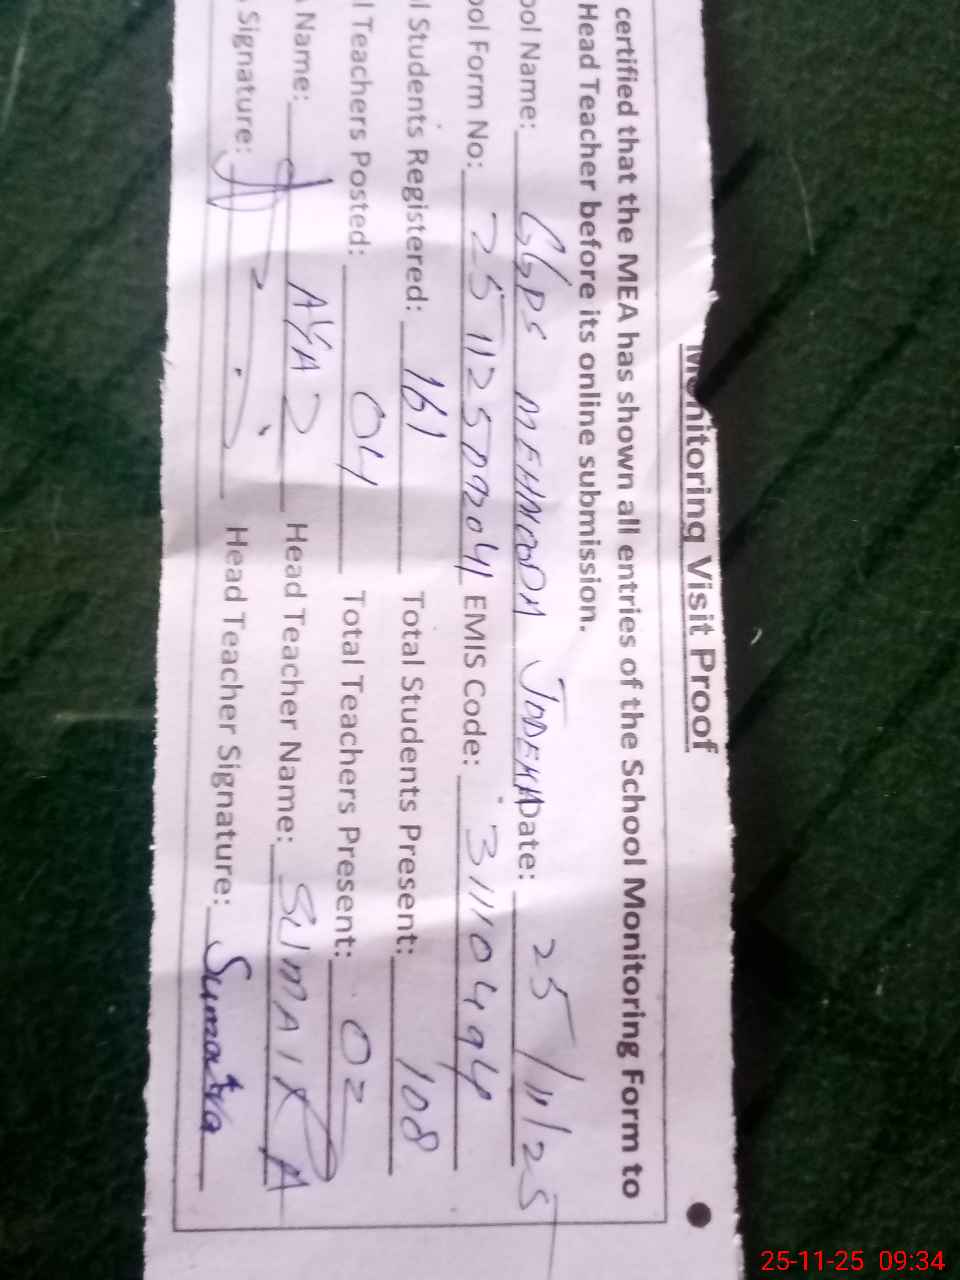 Monitoring Visit Proof
certified that the MEA has shown all entries of the School Monitoring Form to
Head Teacher before its online submission.
ool Name: GGPS MEHMOODA JODEKA Date: 25/11/25
ool Form No: 251125092041 EMIS Code: 31110494
l Students Registered: 161 Total Students Present: 108
l Teachers Posted: 04 Total Teachers Present: 02
A Name: AYAZ Head Teacher Name: SUMAIRA
Signature: Head Teacher Signature: Sumaira
25-11-25 09:34